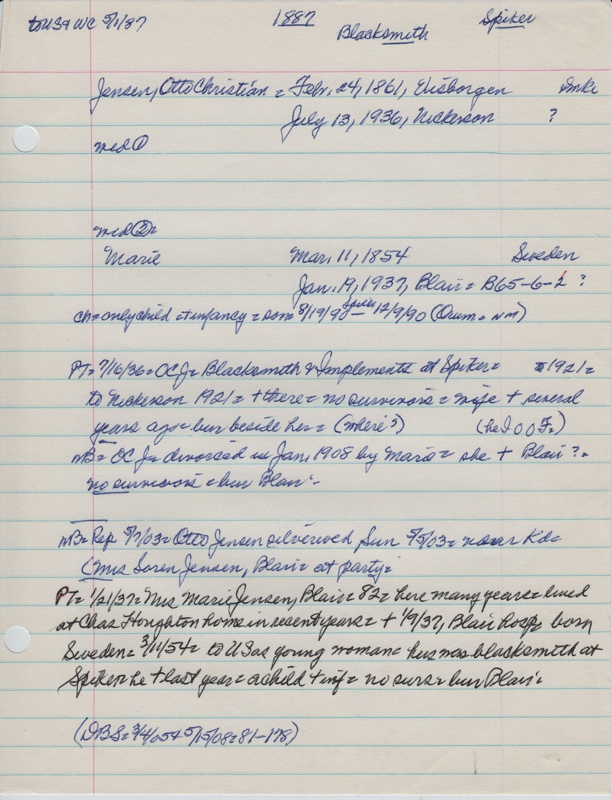 to USA WC 5/1/87 1887 Blacksmith Spiker
Jensen, Otto Christian = Febr. 24, 1861, Elsborgen Dmk
July 13, 1936, Nickerson ?
md ①
md ②=
Marie Mar. 11, 1854 Sweden
Jan. 19, 1937, Blair = B65-6-2 ?
ch = only child + infancy = son 8/19/90 Spiker 12/9/90 (Orum = NM)
PT = 7/16/36 = OCJ = Blacksmith & Implements at Spiker = 1921 =
to Nickerson 1921 = + there = no survivors = wife + several
years ago = bur beside her = (where?) (he IOOF =)
NB = OCJ = divorced in Jan. 1908 by Marie = she + Blair ? =
no survivors = bur Blair =
NB = Rep 5/7/03 = Otto Jensen silverwed Sun 5/5/03 = near Kd =
(Mrs Soren Jensen, Blair = at party =
PT = 1/21/37 = Mrs Marie Jensen, Blair = 82 = here many years = lived
at Chas Houghton home in recent years = + 1/19/37, Blair hosp = born
Sweden = 3/11/54 = to US as young woman = hus was blacksmith at
Spiker = he + last year = a child + inf = no survs = bur Blair =
(DBS = 3/4/05 + 5/15/08 = 81-178)